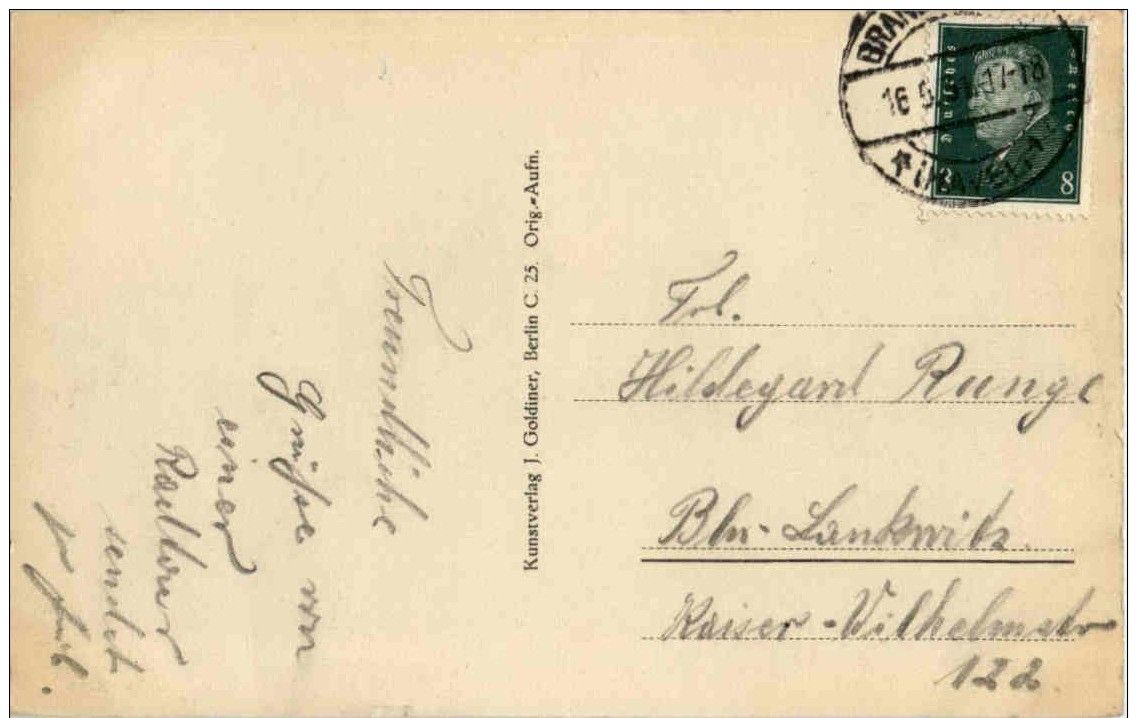 Freundliche
Grüße von
einer
sendet
Kunstverlag J. Goldiner, Berlin C. 25. Orig.-Aufn.
BRAN
16 5 31.17-18
* (HAVEL) 1
Deutsches Reich
8 8
Frl.
Hildegard Runge
Bln-Lankwitz.
Kaiser-Wilhelmstr
122